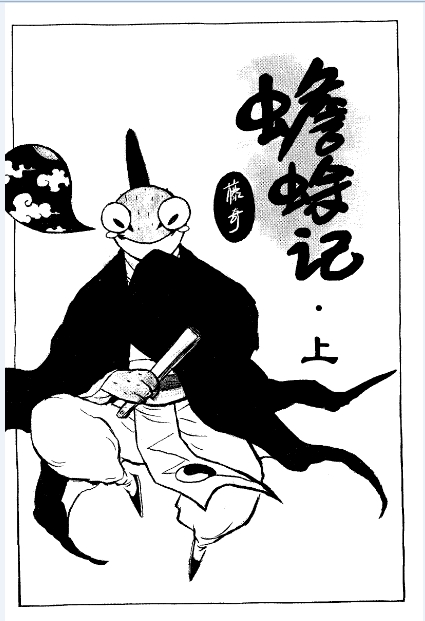 蟾蜍记·上
藤奇